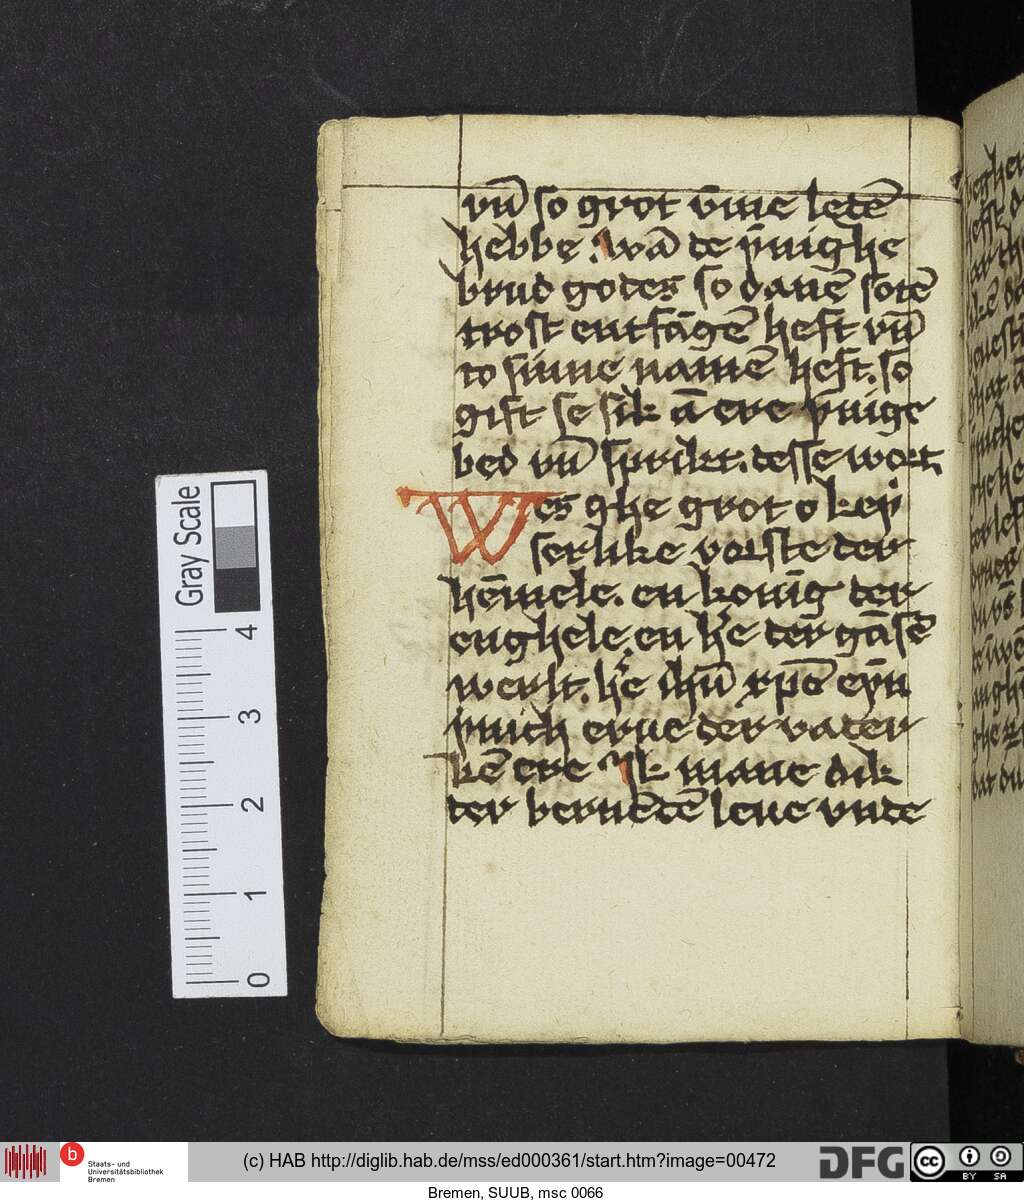 vn̄ so grot vm̄e letē
hebbe . wā de ynighe
brud godes so danē sotē
trost entfāgē heft vn̄
to sinne nāmē heft. so
gift se sik ā ere ynige
bed vn̄ sprikt. desse wort.
Wes ghe grot o key
serlike vorste der
hēmele. en konīg der
enghele. en he der gāsē
werlt. he ihū xpē eyn
ynich erue der vader
kē ere Ik mane dik
der beruēdē leue vnde
Gray Scale
4
3
2
1
0
b
Staats- und
Universitätsbibliothek
Bremen
(c) HAB http://diglib.hab.de/mss/ed000361/start.htm?image=00472
DFG
cc
BY SA
Bremen, SUUB, msc 0066